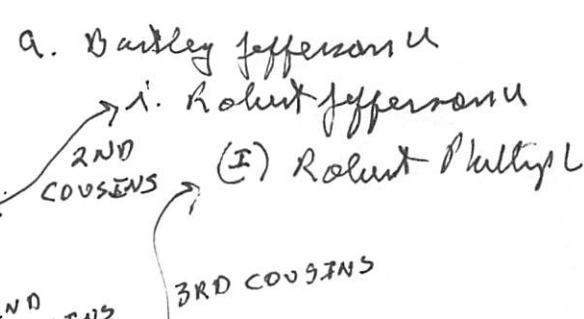 a. Bartley Jefferson
i. Robert Jefferson
2ND
COUSINS
(I) Robert
3RD COUSINS
ND